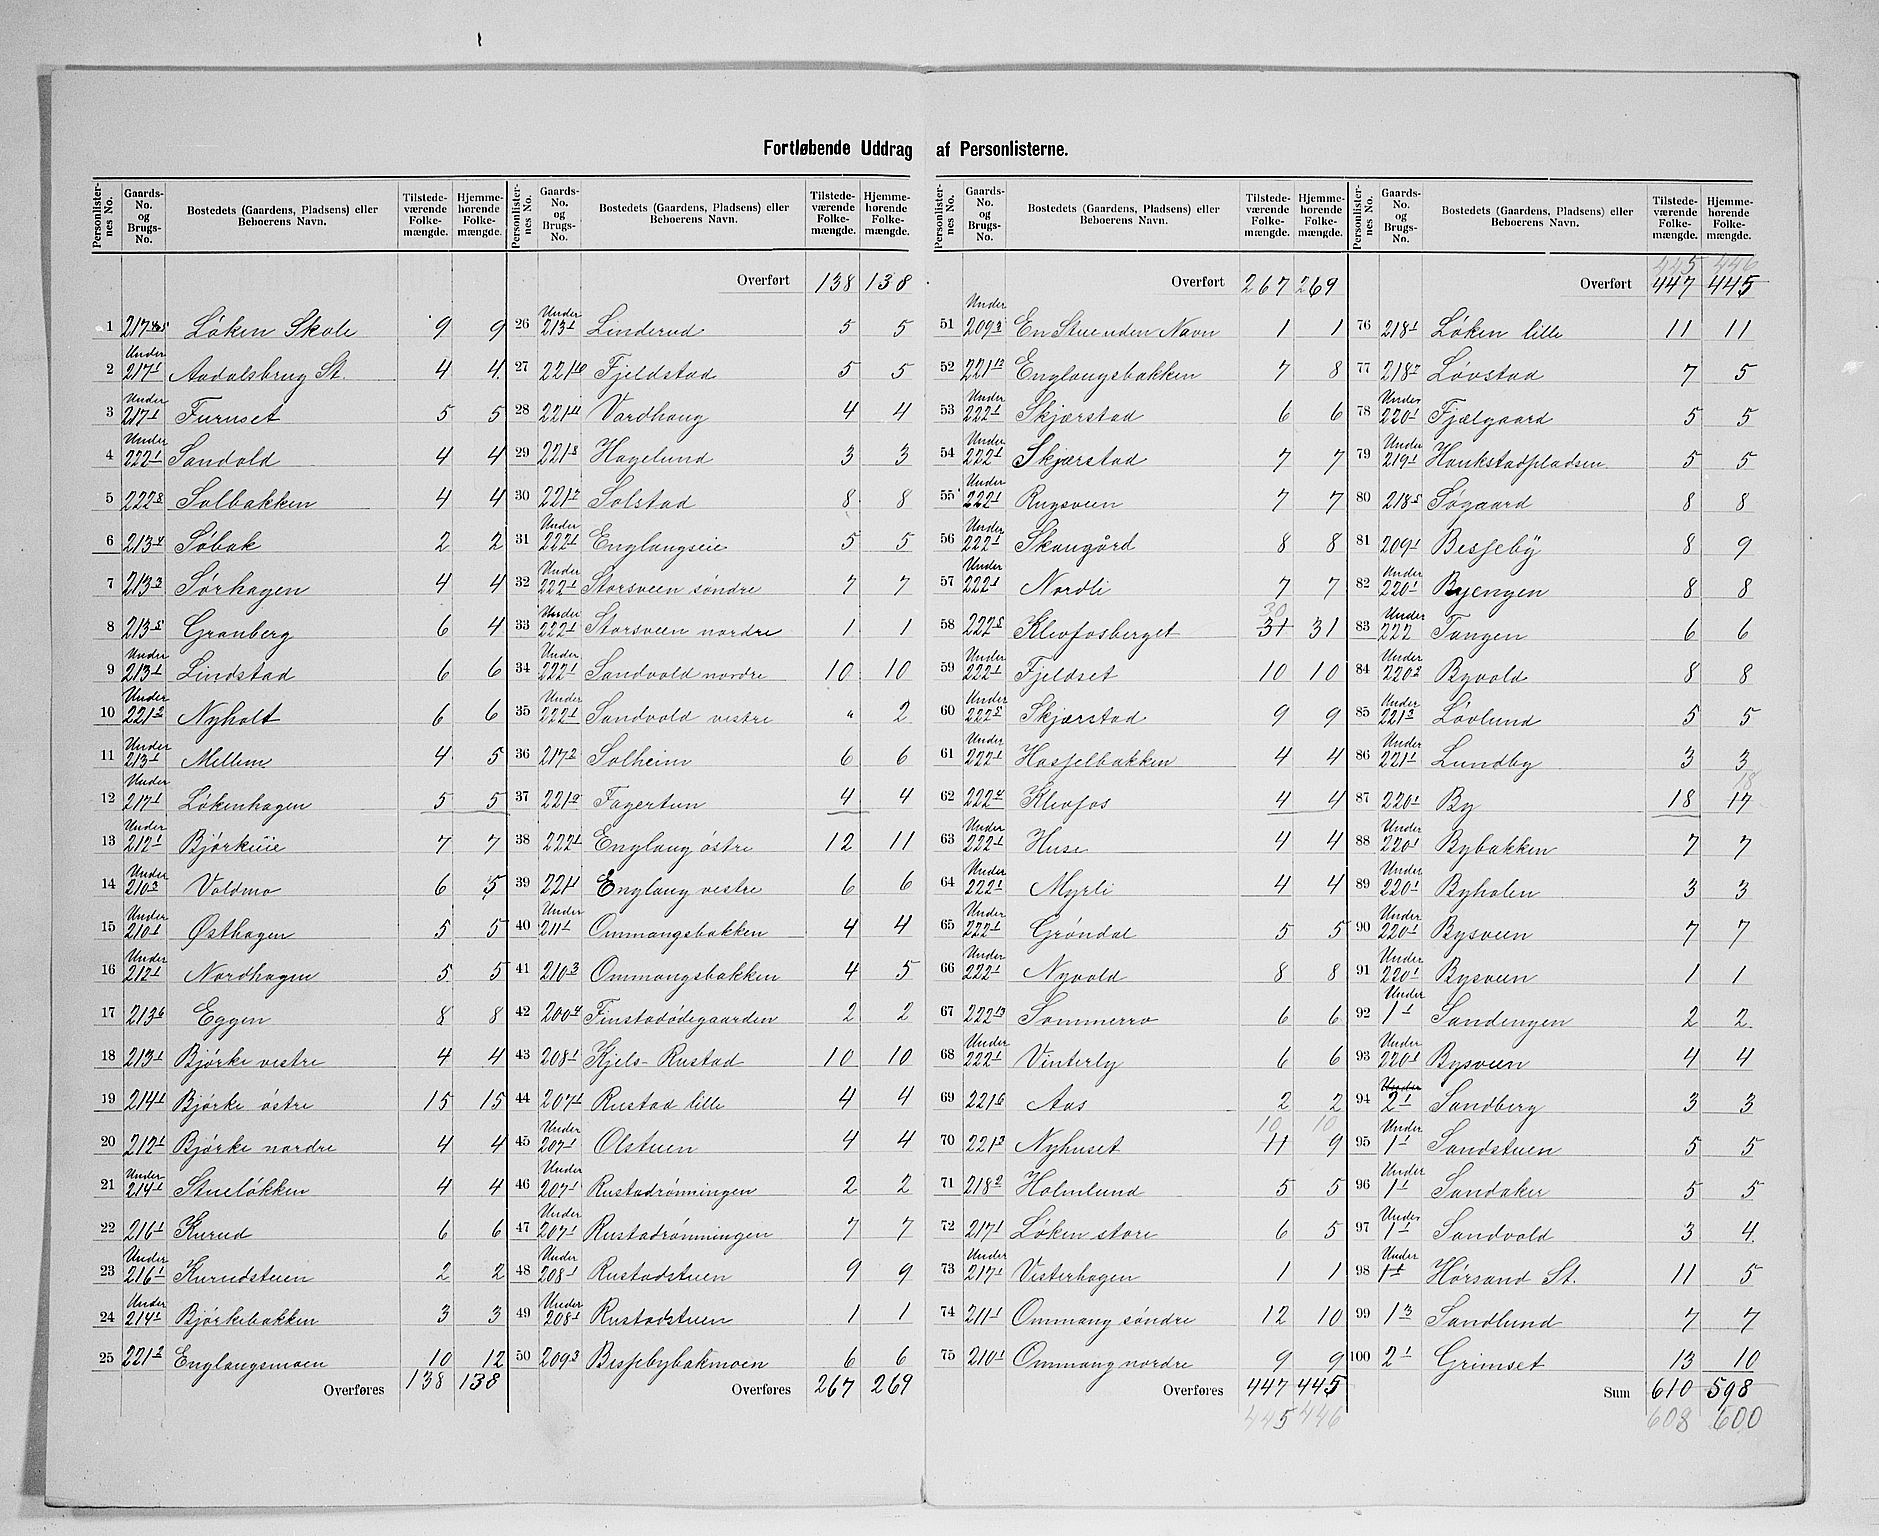 Fortløbende Uddrag af Personlisterne.
Personlister-nes No. | Gaards-No. og Brugs-No. | Bostedets (Gaardens, Pladsens) eller Beboerens Navn. | Tilstede-værende Folke-mængde. | Hjemme-hørende Folke-mængde.
1 | 217 | Løken Skole | 9 | 9
2 | Under 217 1 | Aadalsbrug St. | 4 | 4
3 | Under 217 1 | Furuset | 5 | 5
4 | Under 222 1 | Sandvold | 4 | 4
5 | 222 8 | Solbakken | 4 | 4
6 | 213 4 | Søbak | 2 | 2
7 | 213 3 | Sørhagen | 4 | 4
8 | 213 5 | Granberg | 6 | 4
9 | Under 213 1 | Lindstad | 6 | 6
10 | Under 221 2 | Nyholt | 6 | 6
11 | Under 213 1 | Mellem | 4 | 5
12 | Under 217 1 | Løkenhagen | 5 | 5
13 | Under 212 1 | Bjørkeie | 7 | 7
14 | Under 210 3 | Voldmo | 6 | 5
15 | Under 210 1 | Østhagen | 5 | 5
16 | Under 212 1 | Nordhagen | 5 | 5
17 | 213 6 | Eggen | 8 | 8
18 | 213 1 | Bjørke vestre | 4 | 4
19 | 214 1 | Bjørke østre | 15 | 15
20 | 212 1 | Bjørke nordre | 4 | 4
21 | Under 214 1 | Stueløkken | 4 | 4
22 | 216 1 | Kurud | 6 | 6
23 | Under 216 1 | Kurudstuen | 2 | 2
24 | Under 214 1 | Bjørkebakken | 3 | 3
25 | 221 2 | Englaugsmoen | 10 | 12
Overføres 138 138
Personlister-nes No. | Gaards-No. og Brugs-No. | Bostedets (Gaardens, Pladsens) eller Beboerens Navn. | Tilstede-værende Folke-mængde. | Hjemme-hørende Folke-mængde.
Overført 138 138
26 | Under 213 1 | Linderud | 5 | 5
27 | 221 10 | Fjeldstad | 5 | 5
28 | 221 11 | Vardhaug | 4 | 4
29 | 221 8 | Hagelund | 3 | 3
30 | 221 7 | Solstad | 8 | 8
31 | Under 222 1 | Englaugseie | 5 | 5
32 | Under 222 1 | Storsveen søndre | 7 | 7
33 | Under 222 1 | Storsveen nordre | 1 | 1
34 | Under 222 1 | Sandvold nordre | 10 | 10
35 | Under 222 1 | Sandvold vestre | " | 2
36 | 217 2 | Solheim | 6 | 6
37 | 221 9 | Fagertun | 4 | 4
38 | 222 1 | Englaug østre | 12 | 11
39 | 221 1 | Englaug vestre | 6 | 6
40 | Under 211 1 | Ommangsbakken | 4 | 4
41 | 210 3 | Ommangsbakken | 4 | 5
42 | 200 4 | Finstadødegaarden | 2 | 2
43 | 208 1 | Kjels-Rustad | 10 | 10
44 | 207 1 | Rustad lille | 4 | 4
45 | Under 207 1 | Olstuen | 4 | 4
46 | Under 207 1 | Rustadrønningen | 2 | 2
47 | Under 207 1 | Rustadrønningen | 7 | 7
48 | Under 208 1 | Rustadstuen | 9 | 9
49 | Under 208 1 | Rustadstuen | 1 | 1
50 | 209 3 | Bessebybakmoen | 6 | 6
Overføres 267 269
Personlister-nes No. | Gaards-No. og Brugs-No. | Bostedets (Gaardens, Pladsens) eller Beboerens Navn. | Tilstede-værende Folke-mængde. | Hjemme-hørende Folke-mængde.
Overført 267 269
51 | Under 209 3 | En Stue uden Navn | 1 | 1
52 | 221 12 | Englaugsbakken | 7 | 8
53 | Under 222 1 | Skjærstad | 6 | 6
54 | Under 222 1 | Skjærstad | 7 | 7
55 | Under 222 1 | Rugsveen | 7 | 7
56 | Under 222 1 | Skaugård | 8 | 8
57 | Under 222 1 | Nordli | 7 | 7
58 | 222 5 | Klevfosberget | 30 31 | 31
59 | Under 222 1 | Fjeldset | 10 | 10
60 | Under 222 5 | Skjærstad | 9 | 9
61 | Under 222 1 | Hasselbakken | 4 | 4
62 | 222 4 | Klevfos | 4 | 4
63 | Under 222 1 | Huse | 4 | 4
64 | Under 222 1 | Myrli | 4 | 4
65 | Under 222 1 | Grøndal | 5 | 5
66 | Under 222 1 | Nyvold | 8 | 8
67 | 222 13 | Sommerro | 6 | 6
68 | Under 222 1 | Vinterly | 6 | 6
69 | 221 6 | Aas | 2 | 2
70 | 221 3 | Nyhuset | 10 11 | 10 9
71 | 218 2 | Holmlund | 5 | 5
72 | 217 1 | Løken store | 6 | 5
73 | Under 217 1 | Vesterhagen | 1 | 1
74 | 211 1 | Ommang søndre | 12 | 10
75 | 210 1 | Ommang nordre | 9 | 9
Overføres 447 445
445 446
Personlister-nes No. | Gaards-No. og Brugs-No. | Bostedets (Gaardens, Pladsens) eller Beboerens Navn. | Tilstede-værende Folke-mængde. | Hjemme-hørende Folke-mængde.
445 446
Overført 447 445
76 | 218 1 | Løken lille | 11 | 11
77 | 218 7 | Løvstad | 7 | 5
78 | Under 220 1 | Fjælgaard | 5 | 5
79 | Under 219 1 | Haukstadpladsen | 5 | 5
80 | 218 5 | Søgaard | 8 | 8
81 | 209 1 | Besseby | 8 | 9
82 | Under 220 1 | Byengen | 8 | 8
83 | Under 222 | Tangen | 6 | 6
84 | Under 220 2 | Byvold | 8 | 8
85 | Under 221 3 | Løvlund | 5 | 5
86 | Under 221 1 | Lundby | 3 | 3
87 | 220 1 | By | 18 | 18 17
88 | Under 220 1 | Bybakken | 7 | 7
89 | Under 220 1 | Byholen | 3 | 3
90 | Under 220 1 | Bysveen | 7 | 7
91 | Under 220 1 | Bysveen | 1 | 1
92 | Under 1 1 | Sandengen | 2 | 2
93 | Under 220 1 | Bysveen | 4 | 4
94 | Under 2 1 | Sandberg | 3 | 3
95 | Under 1 1 | Sandstuen | 5 | 5
96 | Under 1 1 | Sandaker | 5 | 5
97 | Under 1 1 | Sandvold | 3 | 4
98 | Under 1 1 | Hørsand St. | 11 | 5
99 | 1 3 | Sandlund | 7 | 7
100 | 2 1 | Grimset | 13 | 10
Sum 610 598
608 600